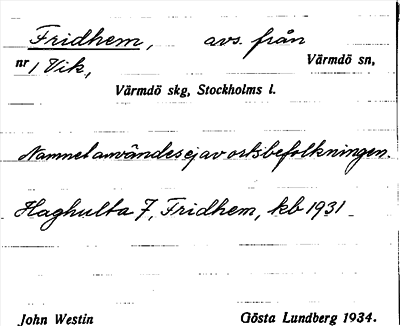 Fridhem, avs. från
nr 1 Vik, Värmdö sn,
Värmdö skg, Stockholms l.
Namnet användes ej av ortsbefolkningen.
Haghulta 7, Fridhem, kb 1931
John Westin Gösta Lundberg 1934.